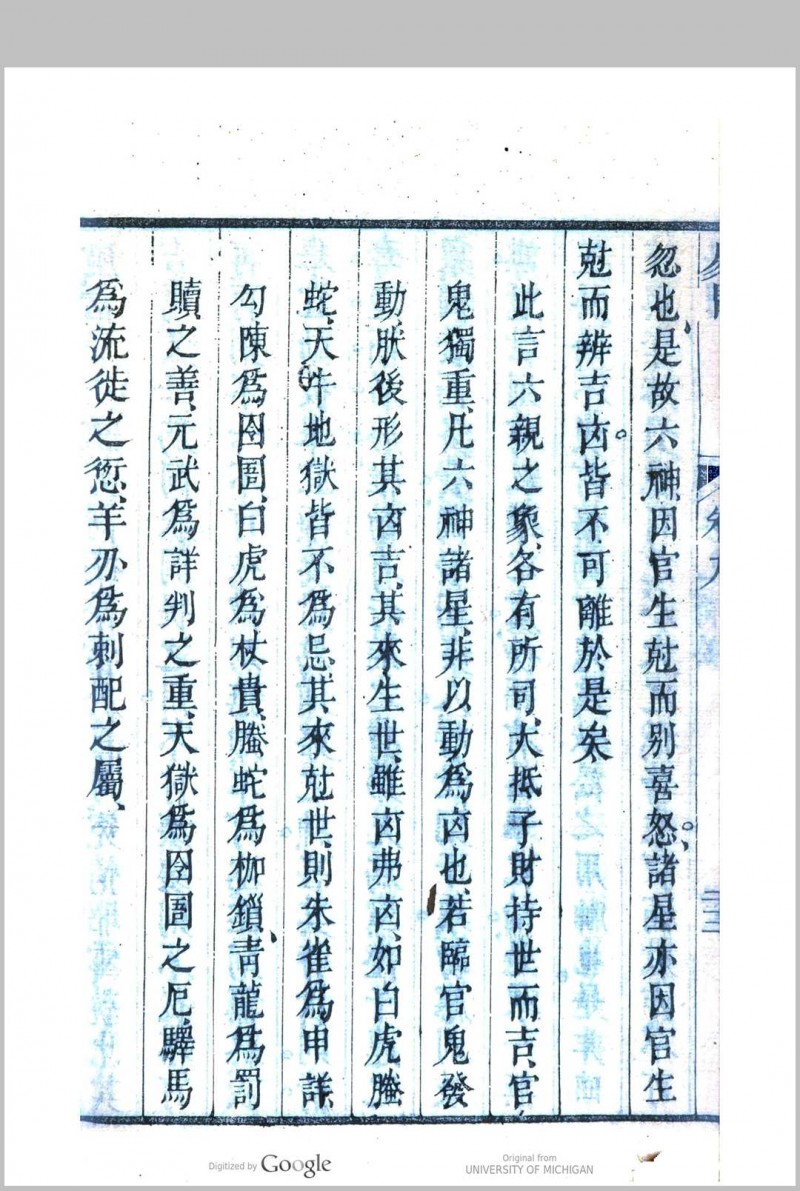 忽也、是故六神、因官生尅而别喜怒。諸星亦因官生
尅而辨吉凶。皆不可離於是矣
此言六親之象、各有所司、大抵子財持世而吉、官
鬼獨重、凡六神諸星、非以動爲凶也、若臨官鬼發
動、肰後形其凶吉、其來生世、雖凶弗凶、如白虎螣
蛇、天牛地獄皆不爲忌、其來尅世、則朱雀爲申詳、
勾陳爲囹圄、白虎爲杖責、螣蛇爲枷鎖、青龍爲罰
贖之善、元武爲詳判之重、天獄爲囹圄之厄、驛馬
爲流徙之愆、羊刃爲刺配之屬、
卷九
Digitized by Google
Original from
UNIVERSITY OF MICHIGAN